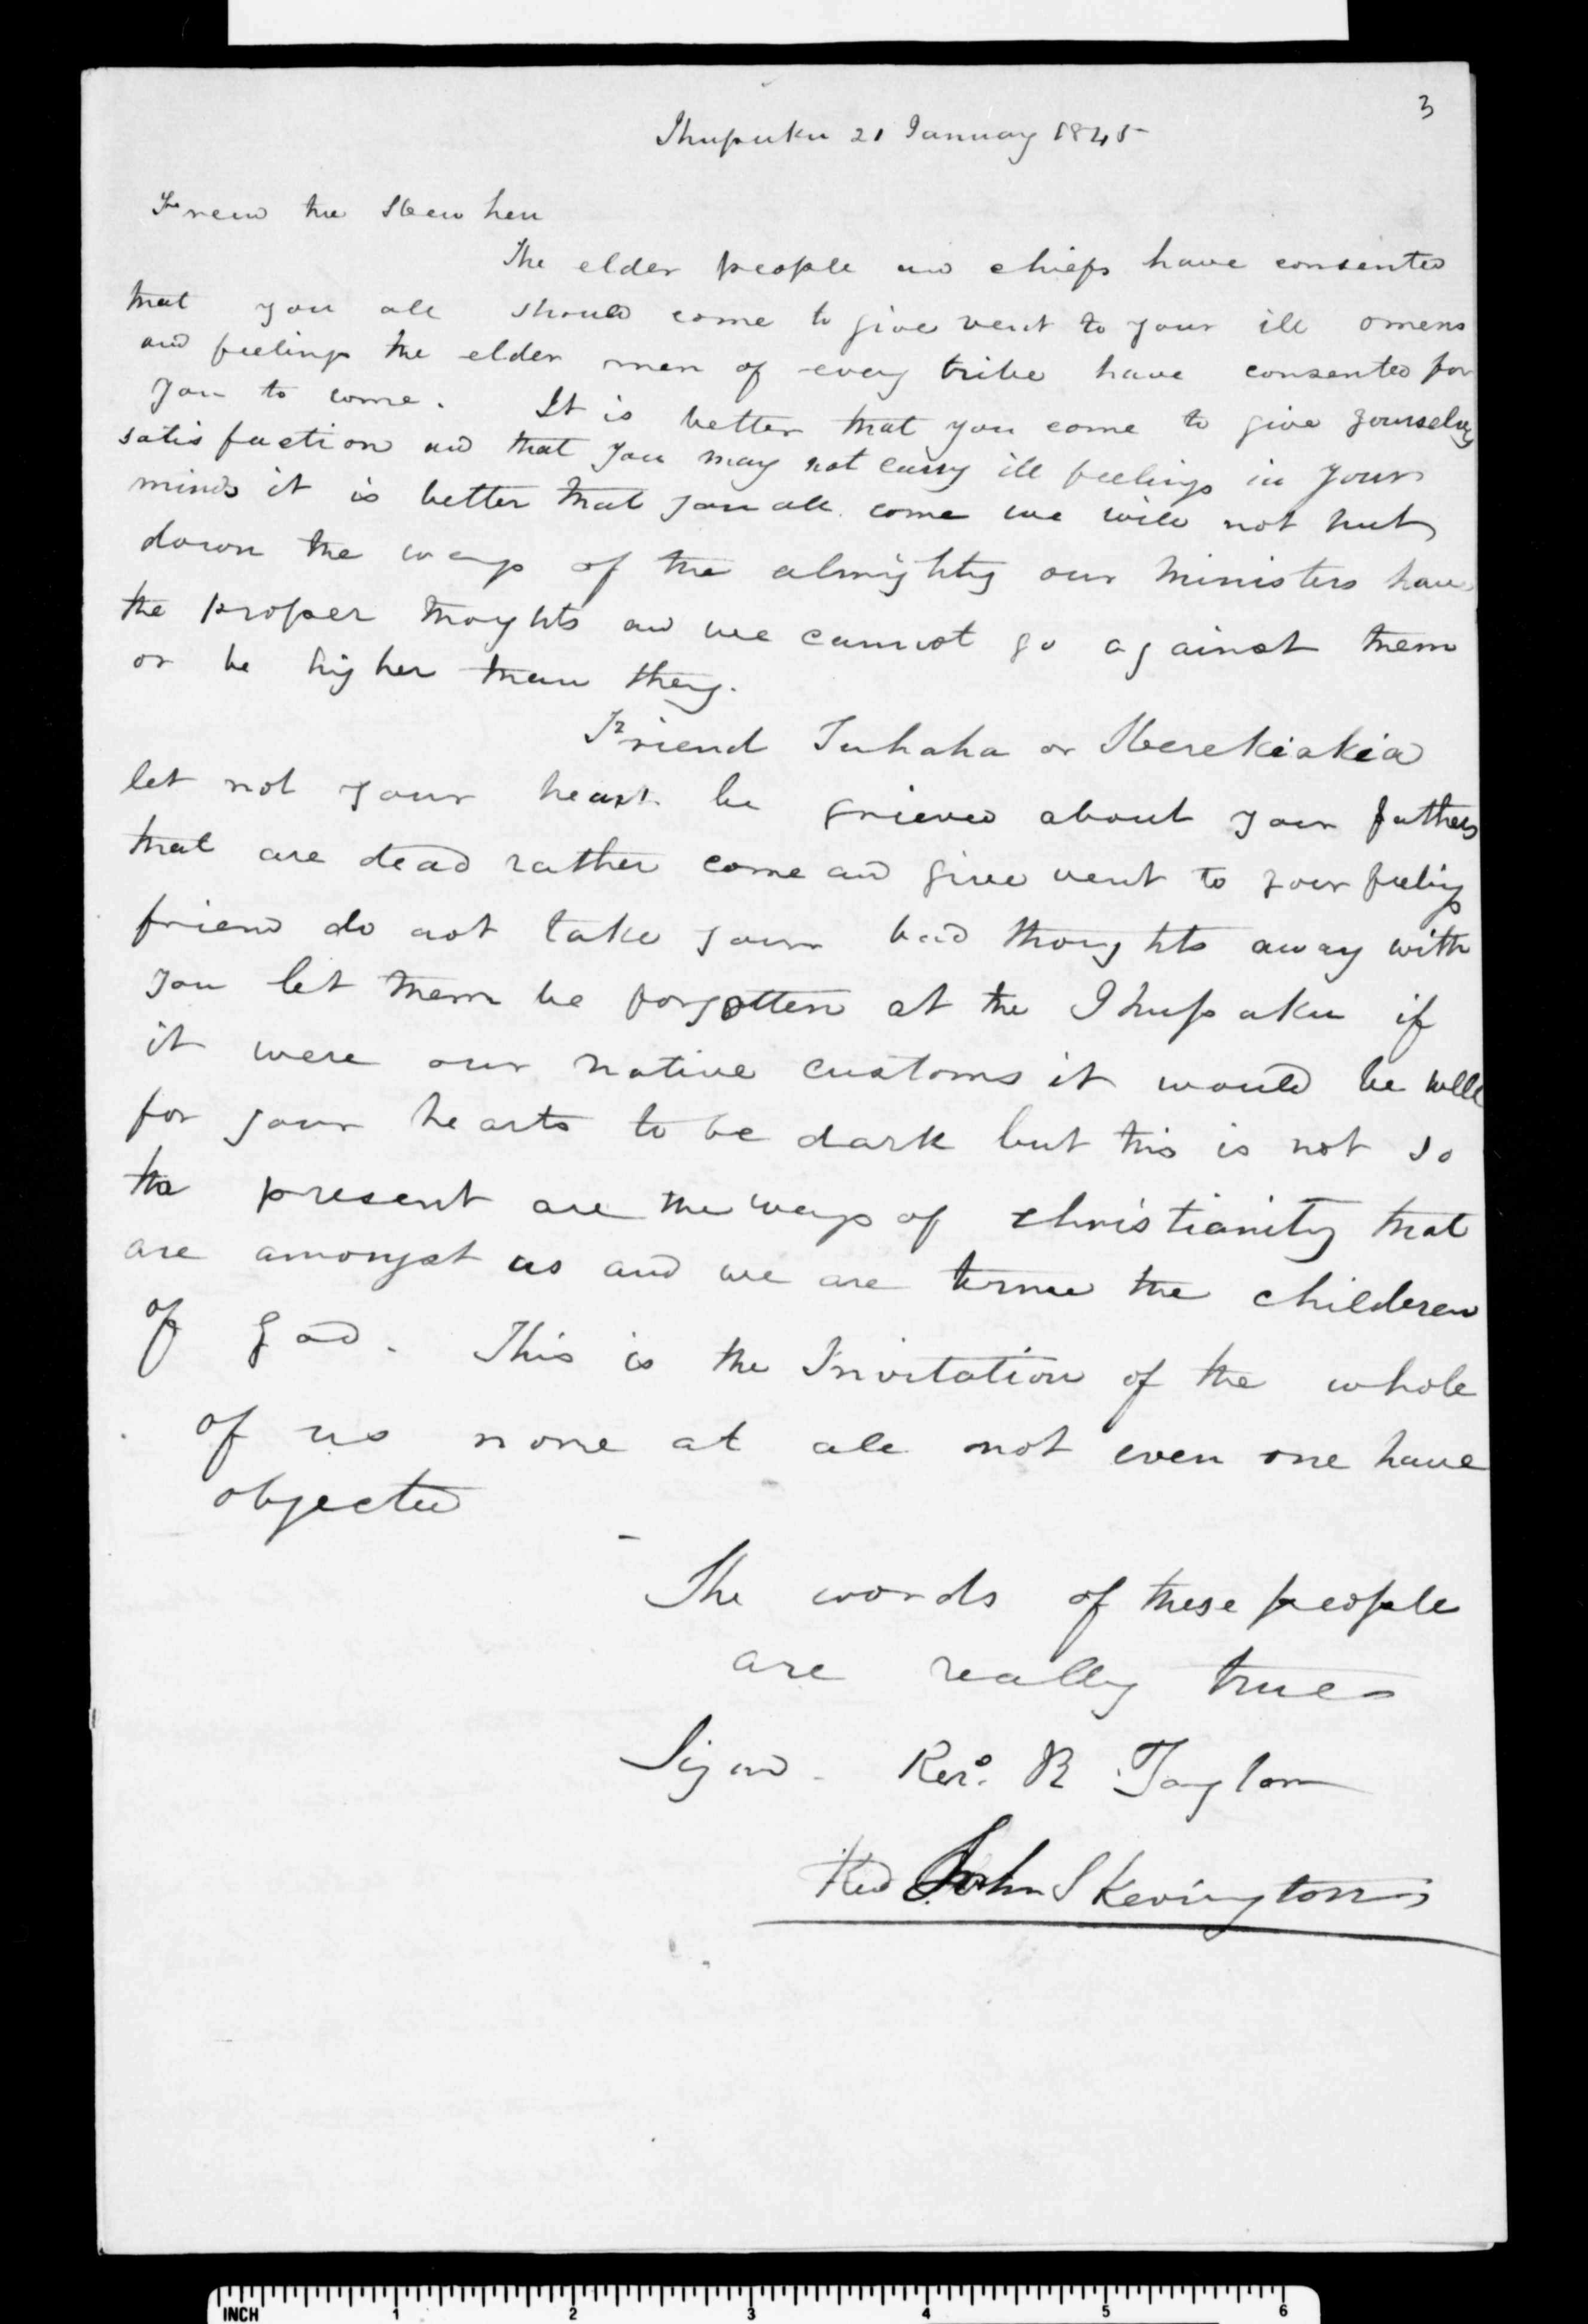 3
Ihupuku 21 January 1845
Friend the Heu heu
The elder people and chiefs have consented
that you all should come to give vent to your ill omens
and feelings the elder men of every tribe have consented for
you to come. It is better that you come to give yourselves
satisfaction and that you may not carry ill feelings in your
minds it is better that you all come we will not put
down the ways of the almighty our ministers have
the proper thoyhts and we cannot go against them
or be higher than they.
Friend Tuhaha or Herekiakia
let not your heart be grieved about your fathers
that are dead rather come and give vent to your feelings
friend do not take your bad thoughts away with
you let them be forgotten at the Ihupuku if
it were our native customs it would be well
for your hearts to be dark but this is not so
the present are the ways of christianity that
are amongst us and we are termed the childeren
of god. This is the Invitation of the whole
of us none at all not even one have
objected
The words of these people
are really true
Signed. Revd. R Taylor
Revd John Skevington
INCH 1 2 3 4 5 6